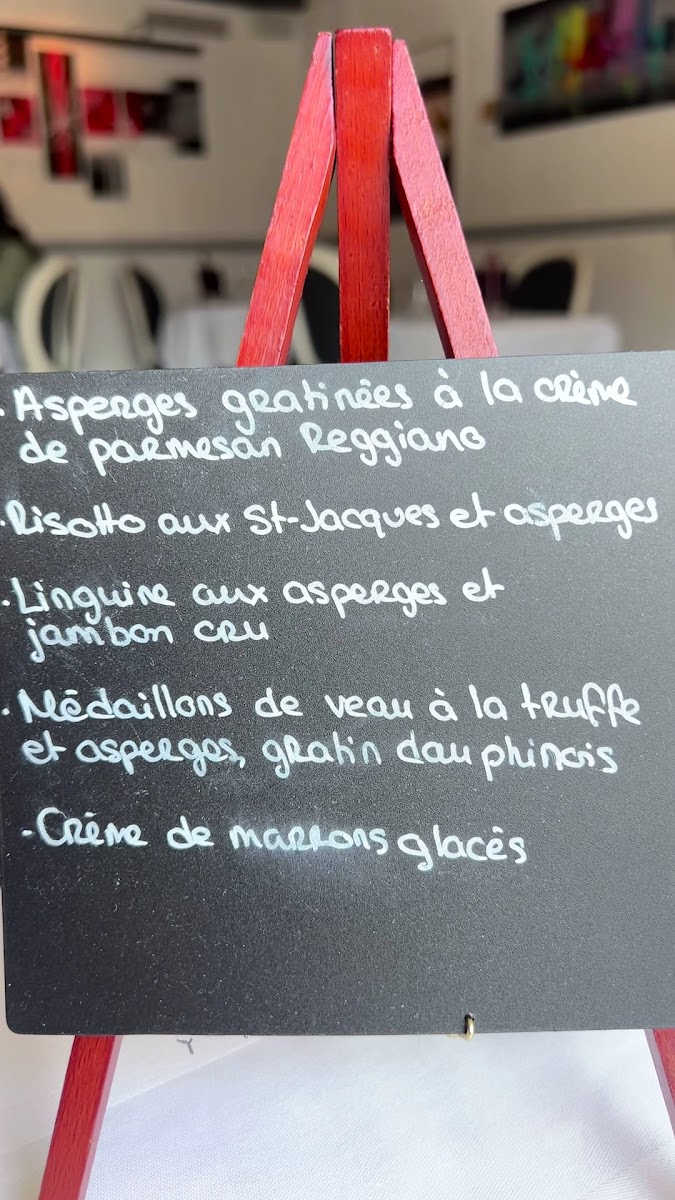 · Asperges gratinées à la crème
de parmesan Reggiano
· Risotto aux St-Jacques et asperges
· Linguine aux asperges et
jambon cru
· Médaillons de veau à la truffe
et asperges, gratin dauphinois
- Crème de marrons glacés